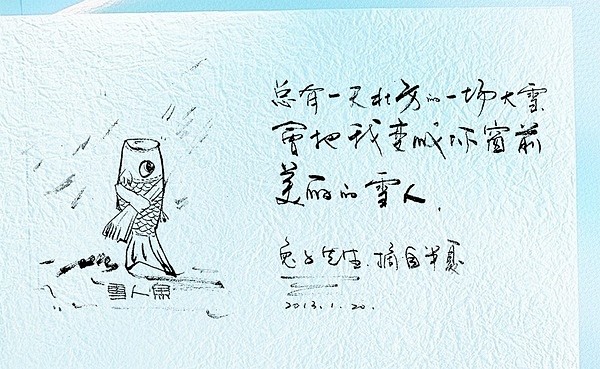 总有一天北方的一场大雪
會把我变成你窗前
美丽的雪人.
兔子先生.摘自半夏
2013.1.20.
雪人魚